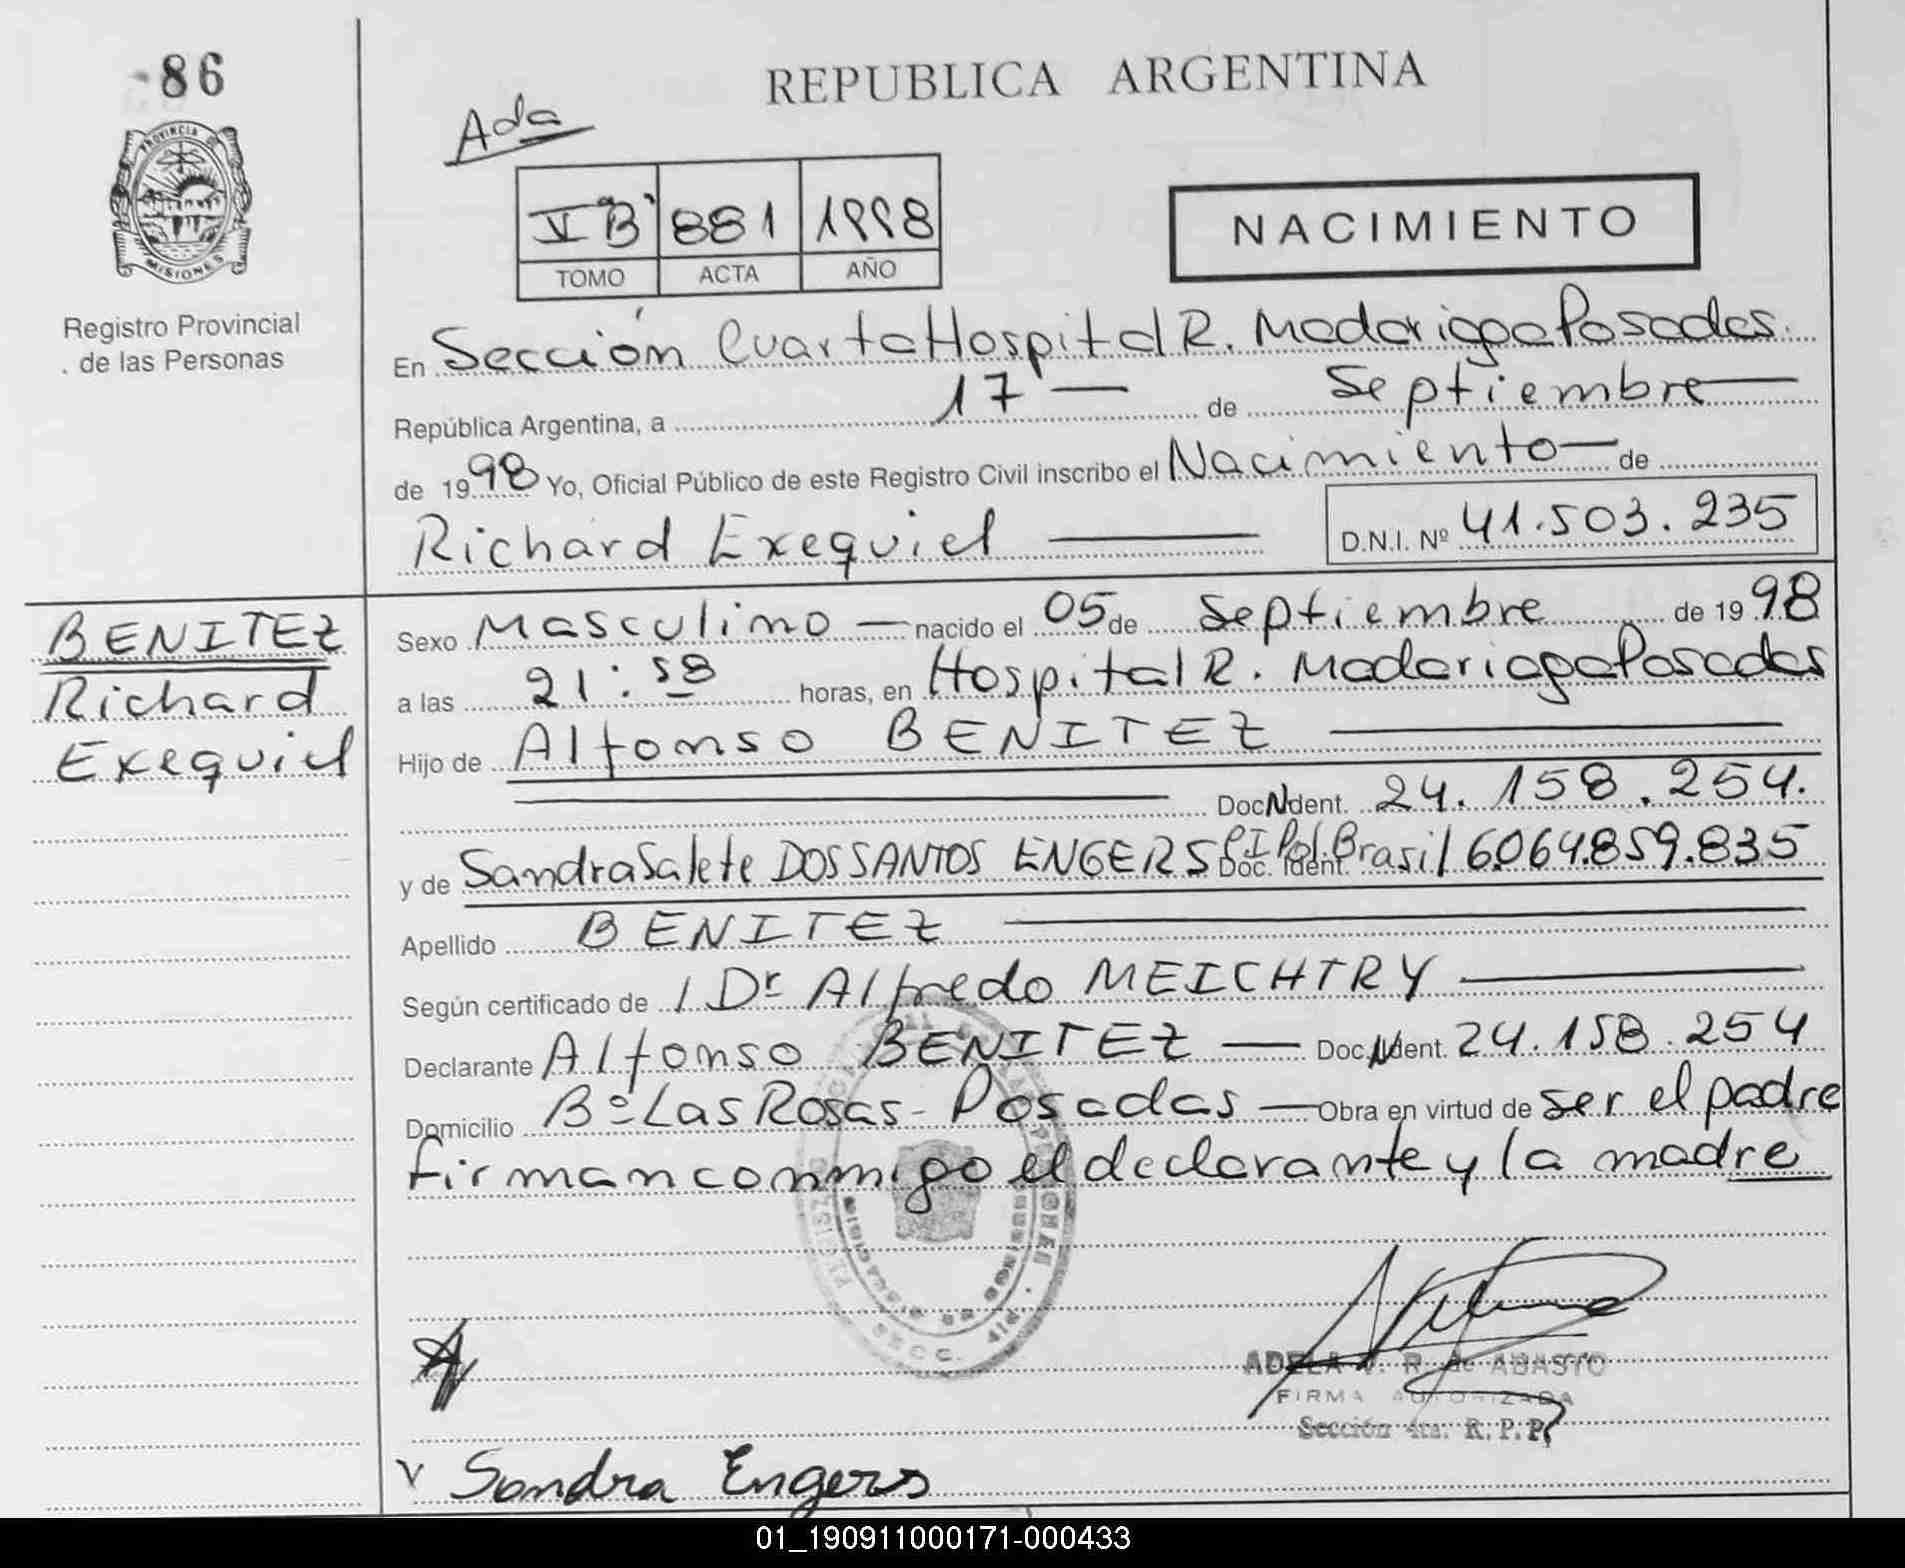 86
PROVINCIA DE
MISIONES
Registro Provincial
de las Personas
REPUBLICA ARGENTINA
Ada
V "B" 881 1998
TOMO ACTA AÑO
NACIMIENTO
En Sección Cuarta Hospital R. Madariaga Posadas
República Argentina, a 17 — de Septiembre —
de 1998 Yo, Oficial Público de este Registro Civil inscribo el Nacimiento — de
Richard Exequiel — D.N.I. Nº 41.503.235
BENITEZ
Richard
Exequiel
Sexo Masculino — nacido el 05 de Septiembre de 1998
a las 21:58 horas, en Hospital R. Madariaga Posadas
Hijo de Alfonso BENITEZ
Doc. Ident. 24.158.254.
y de Sandra Salete DOS SANTOS ENGERS Doc. Ident. C I Pol. Brasil 6064.859.835
Apellido BENITEZ
Según certificado de / Dr Alfredo MEICHTRY
Declarante Alfonso BENITEZ — Doc. Ident. 24.158.254
Domicilio Bº Las Rosas - Posadas — Obra en virtud de ser el padre
firman conmigo el declarante y la madre
ADELA R. de ABASTO
FIRMA AUTORIZADA
Sección 4ta. R.P.P.
Sandra Engers
01_190911000171-000433